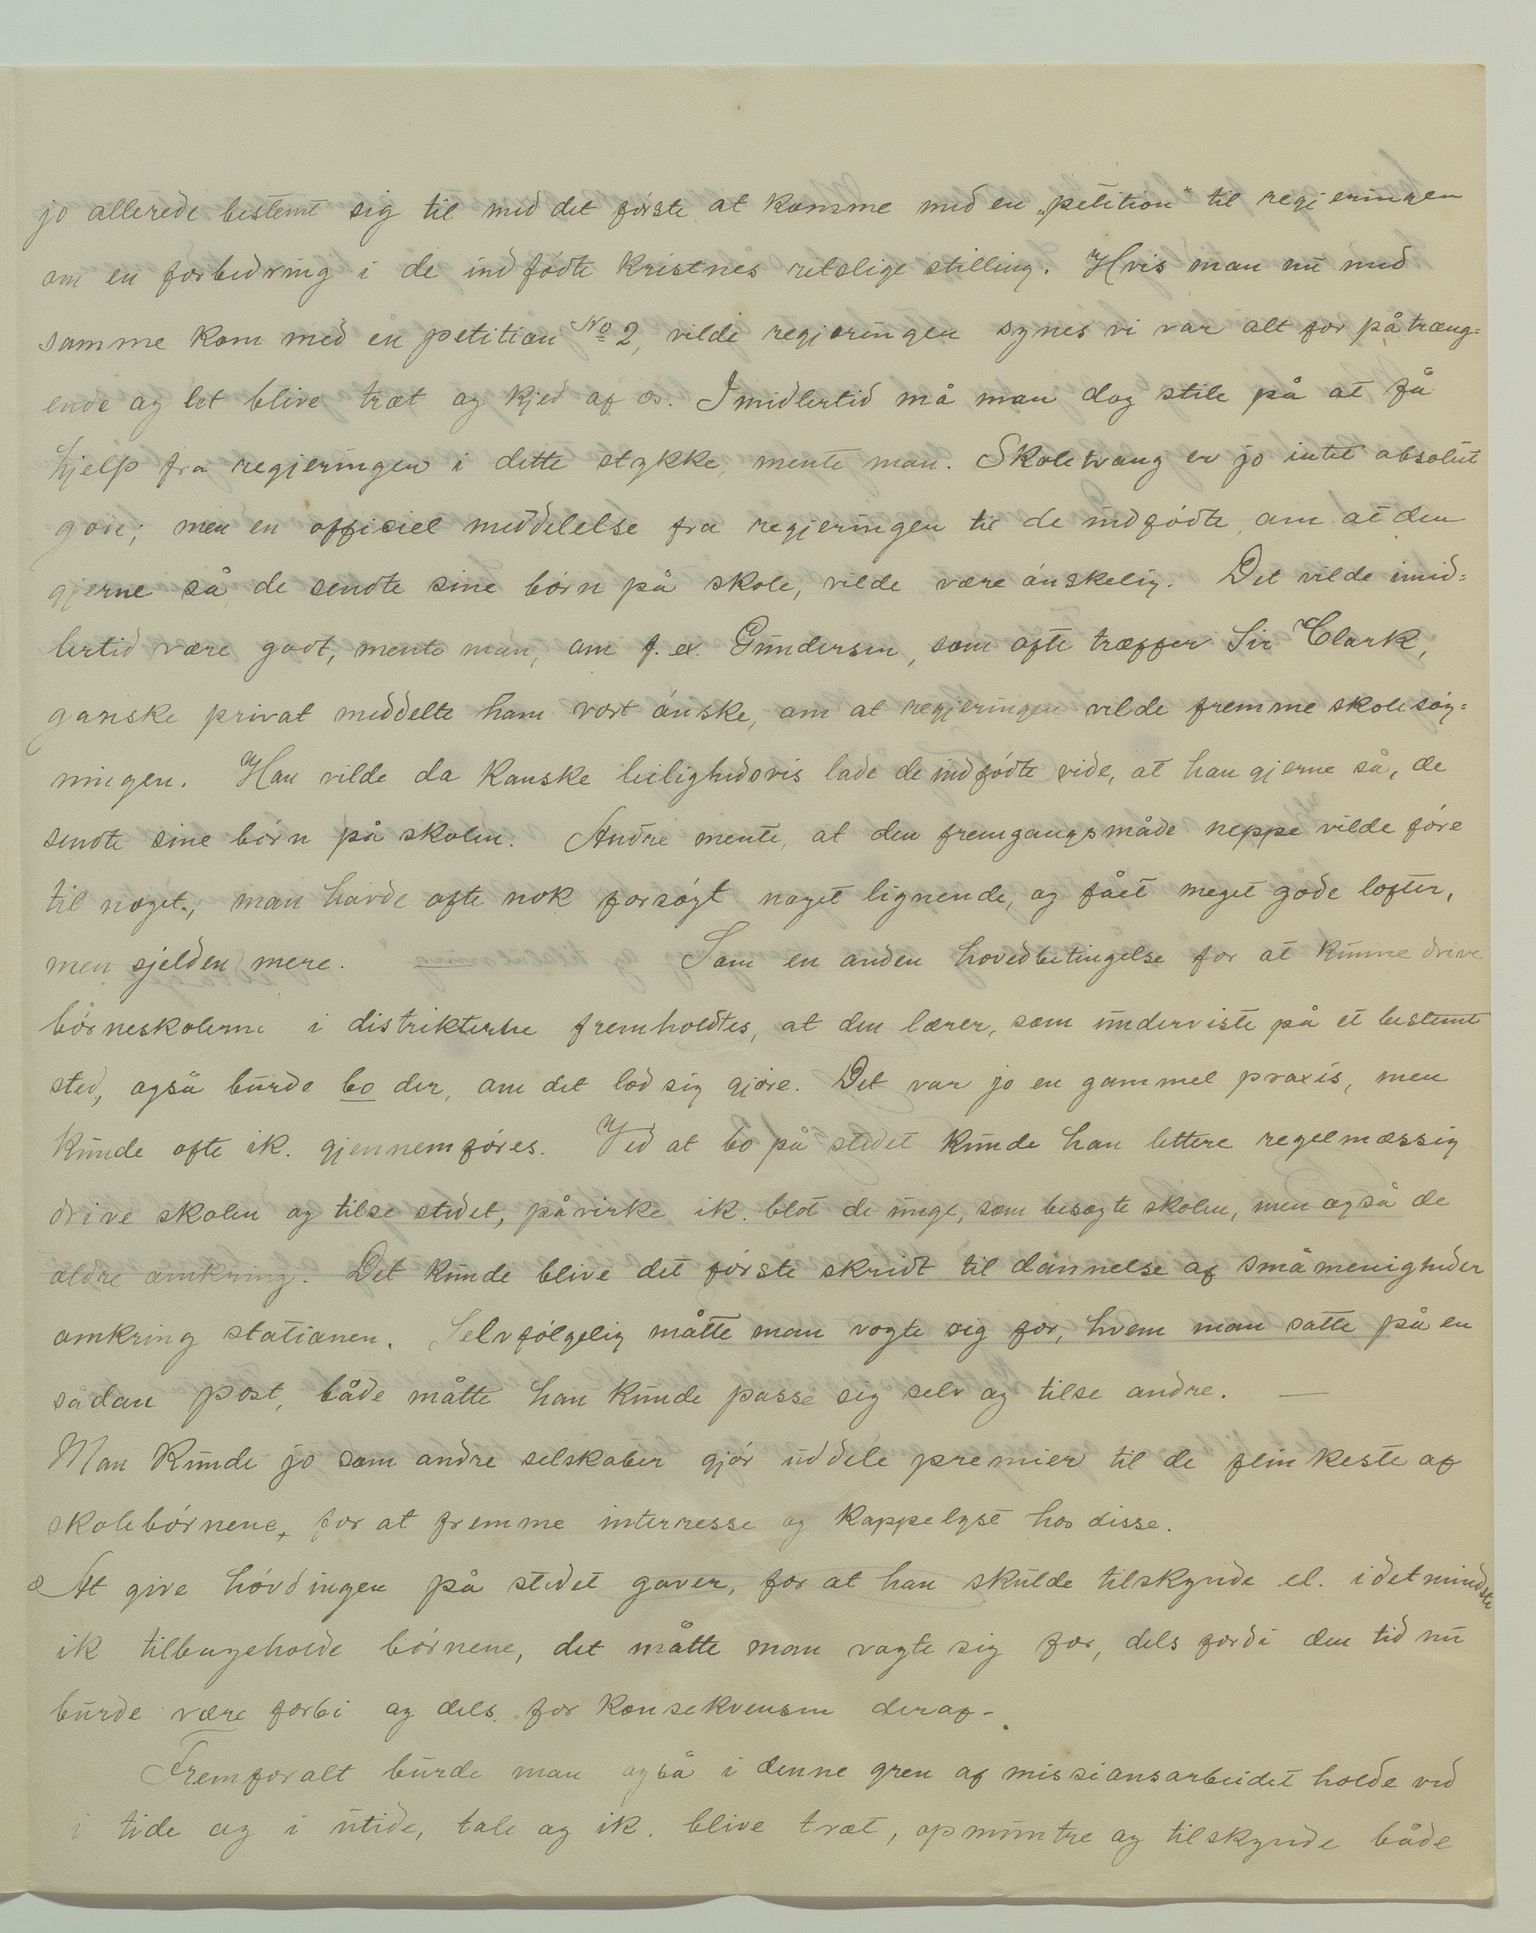 jo allerede bestemt sig til med det første at komme med en „petition“ til regjeringen
om en forbedring i de indfødte kristnes retslige stilling. Hvis man nu med
samme kom med en petition No 2, vilde regjeringen synes vi var alt for påtræng=
ende og let blive træt og kjed af os. Imidlertid må man dog stile på at få
hjelp fra regjeringen i dette stykke, mente man. Skoletvang er jo intet absolut
gode; men en officiel meddelelse fra regjeringen til de indfødte, om at den
gjerne så, de sendte sine børn på skole, vilde være ønskelig. Det vilde imid=
lertid være godt, mente man, om f. ex. Gundersen, som ofte træffer Sir Clark,
ganske privat meddelte ham vort ønske, om at regjeringen vilde fremme skolesøg=
ningen. Han vilde da kanske leilighedsvis lade de indfødte vide, at han gjerne så, de
sendte sine børn på skolen. Andre mente, at den fremgangsmåde neppe vilde føre
til noget, man havde ofte nok forsøgt noget lignende, og fået meget gode løfter,
men sjelden mere. — Som en anden hovedbetingelse for at kunne drive
børneskolerne i distrikterne fremholdtes, at den lærer, som underviste på et bestemt
sted, også burde bo der, om det lod sig gjøre. Det var jo en gammel praxis, men
kunde ofte ik. gjennemføres. Ved at bo på stedet kunde han lettere regelmæssig
drive skolen og tilse stedet, påvirke ik. blot de unge, som besøgte skolen, men også de
ældre omkring. Det kunde blive det første skridt til dannelse af småmenigheder
omkring stationen. Selvfølgelig måtte man vogte sig for, hvem man satte på en
sådan post, både måtte han kunde passe sig selv og tilse andre. —
Man kunde jo som andre selskaber gjør uddele premier til de flinkeste af
skolebørnene, for at fremme interresse og kappelyst hos disse.
At give høvdingen på stedet gaver, for at han skulde tilskynde el. idetmindste
ik tilbageholde børnene, det måtte man vogte sig for, dels fordi den tid nu
burde være forbi og dels for konsekvensen deraf.
Fremforalt burde man også i denne gren af missionsarbeidet holde ved
i tide og i utide, tale og ik. blive træt, opmuntre og tilskynde både